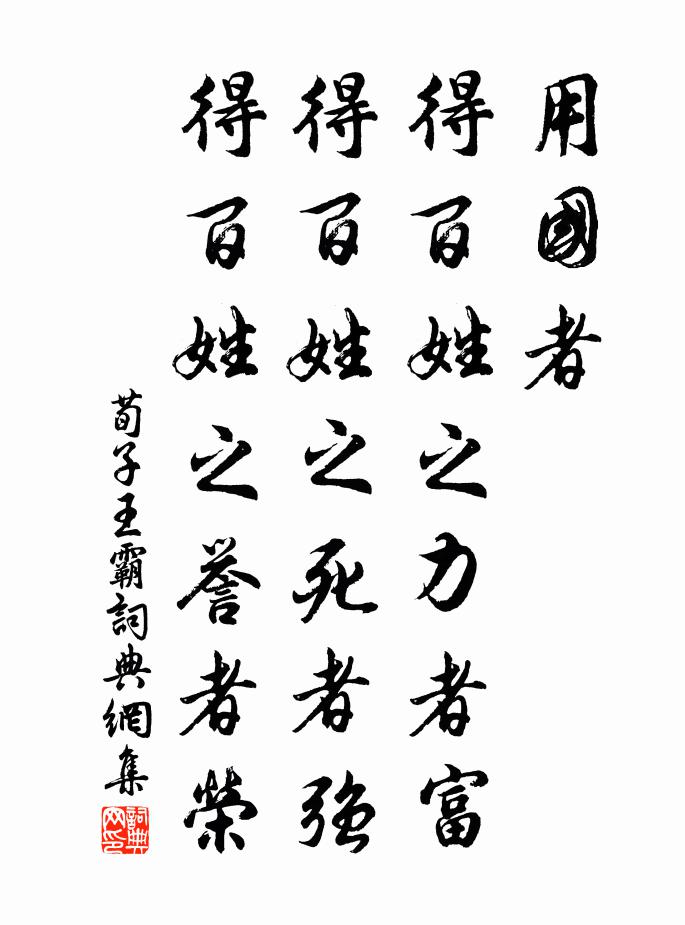 用國者
得百姓之力者富
得百姓之死者强
得百姓之誉者榮
荀子王霸詞典網集
詞典网印